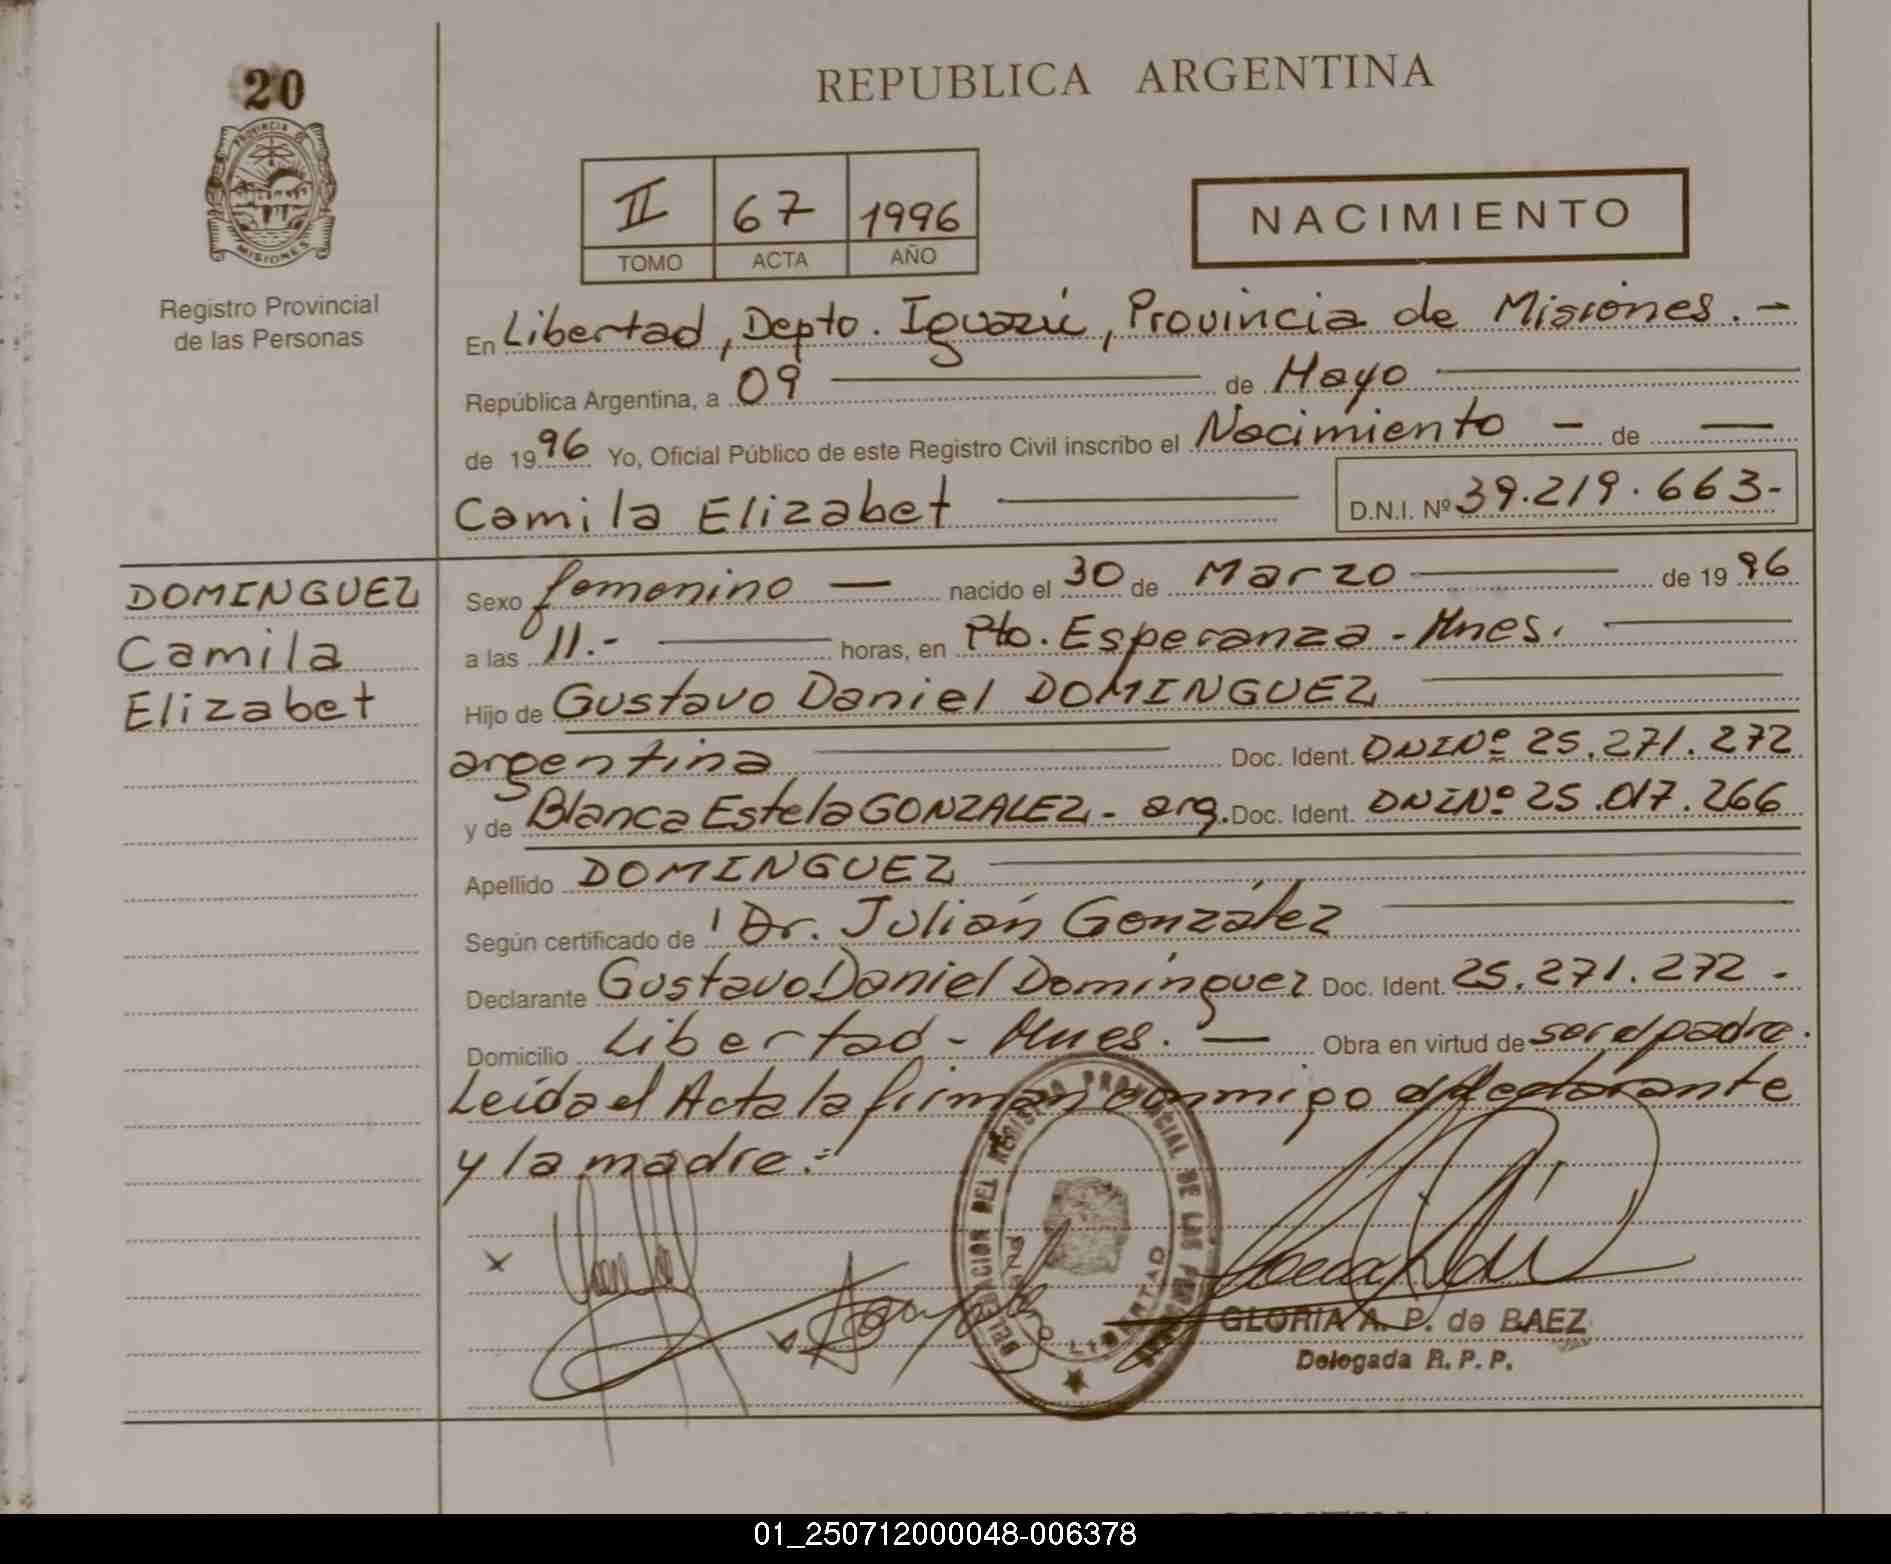 20
PROVINCIA DE
MISIONES
Registro Provincial
de las Personas
REPUBLICA ARGENTINA
II 67 1996
TOMO ACTA AÑO
NACIMIENTO
En Libertad, Depto. Iguazú, Provincia de Misiones. -
República Argentina, a 09 de Mayo
de 1996 Yo, Oficial Público de este Registro Civil inscribo el Nacimiento - de —
Camila Elizabet D.N.I. Nº 39.219.663-
DOMINGUEZ
Camila
Elizabet
Sexo femenino — nacido el 30 de Marzo de 1996
a las 11.- horas, en Pto. Esperanza - Mnes.
Hijo de Gustavo Daniel DOMINGUEZ
argentina Doc. Ident. DNI Nº 25.271.272
y de Blanca Estela GONZALEZ - arg. Doc. Ident. DNI Nº 25.017.266
Apellido DOMINGUEZ
Según certificado de Dr. Julián González
Declarante Gustavo Daniel Domínguez Doc. Ident. 25.271.272 -
Domicilio Libertad - Mnes. — Obra en virtud de ser el padre.
Leída el Acta la firman conmigo el declarante
y la madre.=
x
DELEGACION DEL REGISTRO PROVINCIAL DE LAS PERSONAS
LIBERTAD
GLORIA A. P. de BAEZ
Delegada R. P. P.
01_250712000048-006378